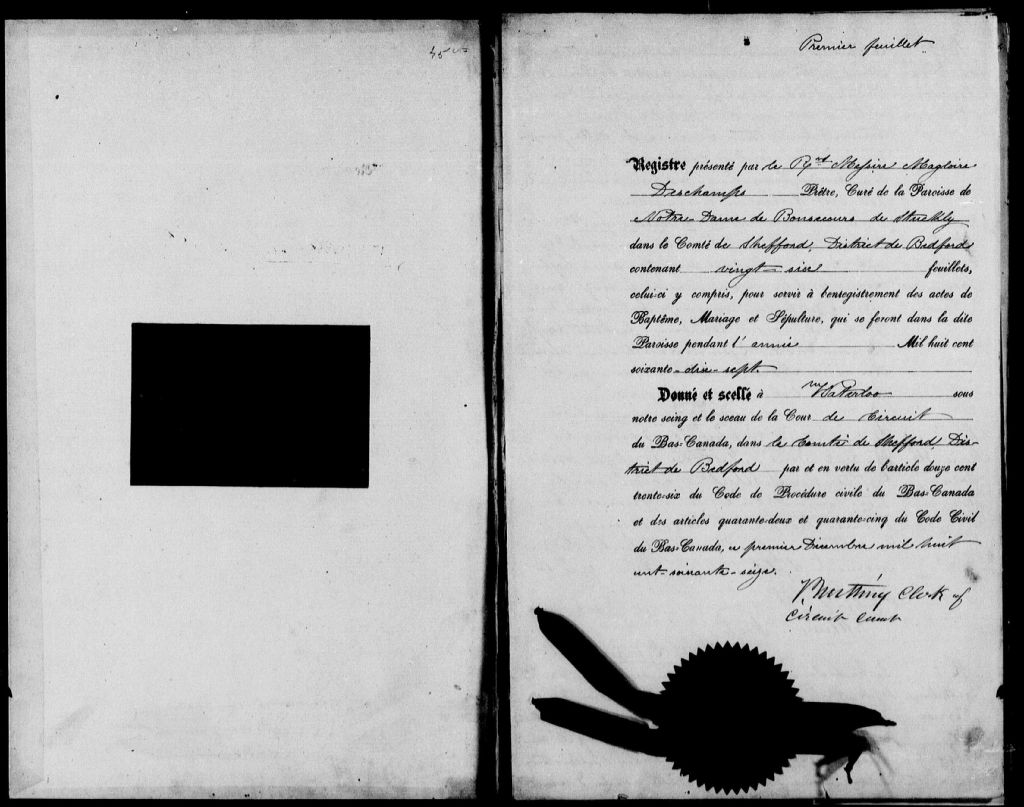 45
Premier feuillet
Registre présenté par le R.d Messire Magloire
Deschamps Prêtre, Curé de la Paroisse de
Notre-Dame de Bonsecours de Stukely
dans le Comté de Shefford, District de Bedford
contenant vingt-six feuillets,
celui-ci y compris, pour servir à l'enregistrement des actes de
Baptême, Mariage et Sépulture, qui se feront dans la dite
Paroisse pendant l'année Mil huit cent
soixante-dix-sept.
Donné et scellé à Waterloo sous
notre seing et le sceau de la Cour de Circuit
du Bas-Canada, dans le Comté de Shefford, Dis-
trict de Bedford par et en vertu de l'article douze cent
trente-six du Code de Procédure civile du Bas-Canada
et des articles quarante-deux et quarante-cinq du Code Civil
du Bas-Canada, ce premier Décembre mil huit
cent-soixante-seize.
Clerk of
Circuit Court